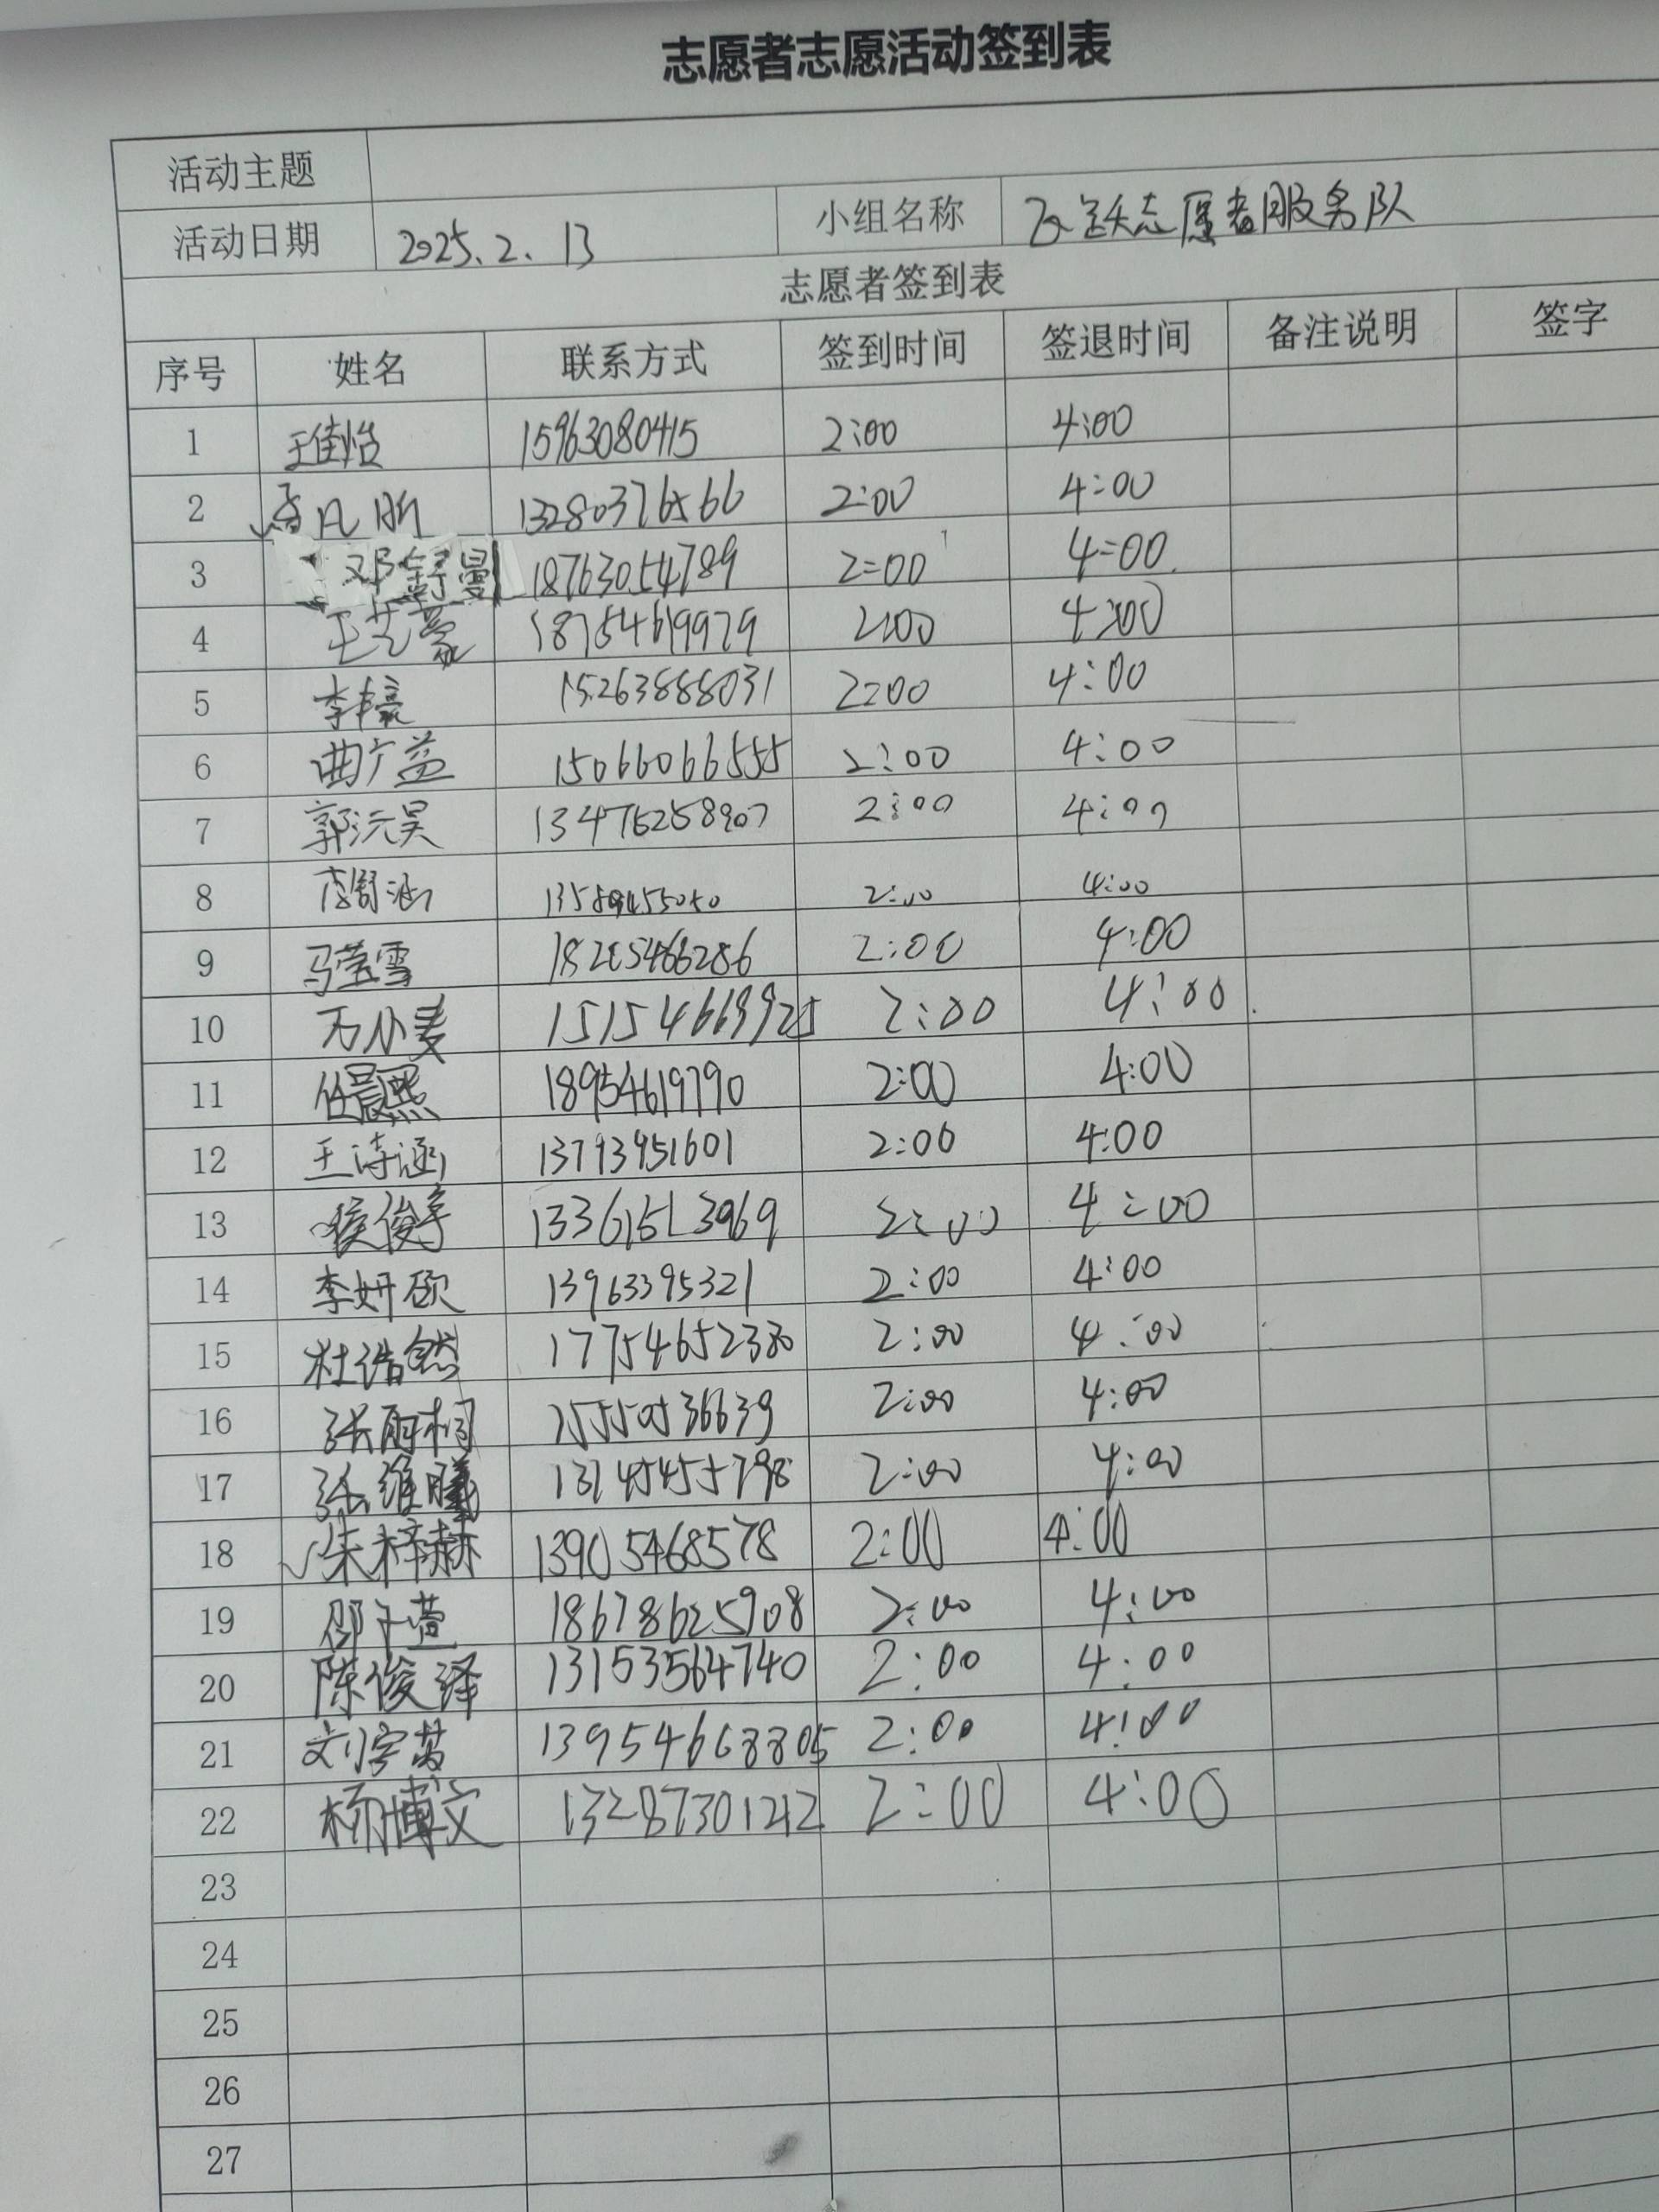 志愿者志愿活动签到表
活动主题
活动日期 2025.2.13 小组名称 飞跃志愿者服务队
志愿者签到表
序号 姓名 联系方式 签到时间 签退时间 备注说明 签字
1 王佳怡 15963080415 2:00 4:00
2 凡昕 13280376566 2:00 4:00
3 邓舒曼 18763054789 2:00 4:00
4 王艺蒙 18754619979 2:00 4:00
5 李 15263888031 2:00 4:00
6 曲广益 15066066555 2:00 4:00
7 郭沅昊 13476258907 2:00 4:00
8 李舒涵 2:00 4:00
9 马莹雪 18205466286 2:00 4:00
10 万小麦 15154669925 2:00 4:00
11 任晨熙 18954619790 2:00 4:00
12 王诗涵 13793951601 2:00 4:00
13 侯俊宇 2:00 4:00
14 李妍硕 13963395321 2:00 4:00
15 杜浩然 17754652330 2:00 4:00
16 张雨桐 2:00 4:00
17 张维曦 2:00 4:00
18 朱梓赫 13905468578 2:00 4:00
19 邵子萱 18678625908 2:00 4:00
20 陈俊泽 13153564740 2:00 4:00
21 刘宇 13954668805 2:00 4:00
22 杨博文 13287301212 2:00 4:00
23
24
25
26
27